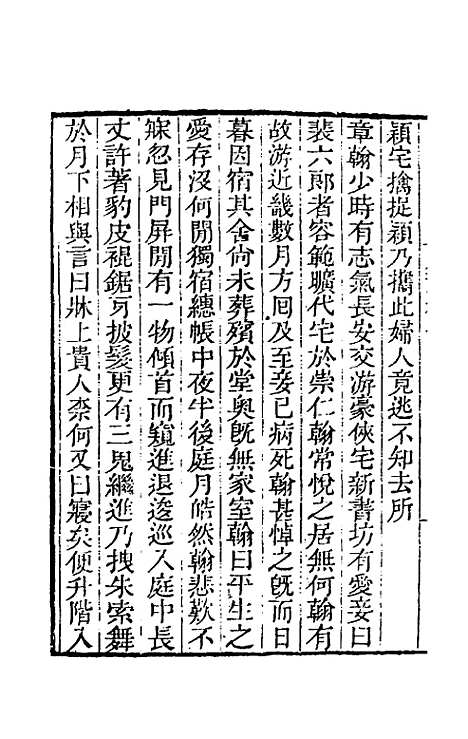 穎宅擒捉穎乃攜此婦人竟逃不知去所
章翰少時有志氣長安交游豪俠宅新書坊有愛妾曰
裴六郎者容範曠代宅於崇仁翰常悅之居無何翰有
故游近畿數月方囘及至妾已病死翰甚悼之旣而日
暮因宿其舍尙未葬殯於堂奥旣無家室翰曰平生之
愛存沒何閒獨宿繐帳中夜半後庭月皓然翰悲歎不
寐忽見門屏閒有一物傾首而窺進退逡巡入庭中長
丈許著豹皮裩鋸牙披髮更有三鬼繼進乃拽朱索舞
於月下相與言曰牀上貴人柰何又曰寢矣便升階入